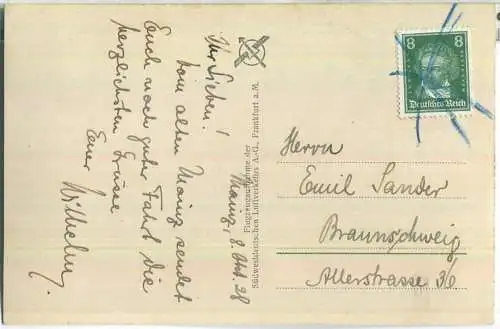 Mainz, 8. Okt. 28
Ihr Lieben!
Vom alten Mainz sendet
Euch nach guter Fahrt die
herzlichsten Grüsse
Euer
Wilhelm.
Flugzeugaufnahme der
Südwestdeutschen Luftverkehrs A.-G., Frankfurt a. M.
8 8
Deutsches Reich
Herrn
Emil Sander
Braunschweig
Allerstrasse 36